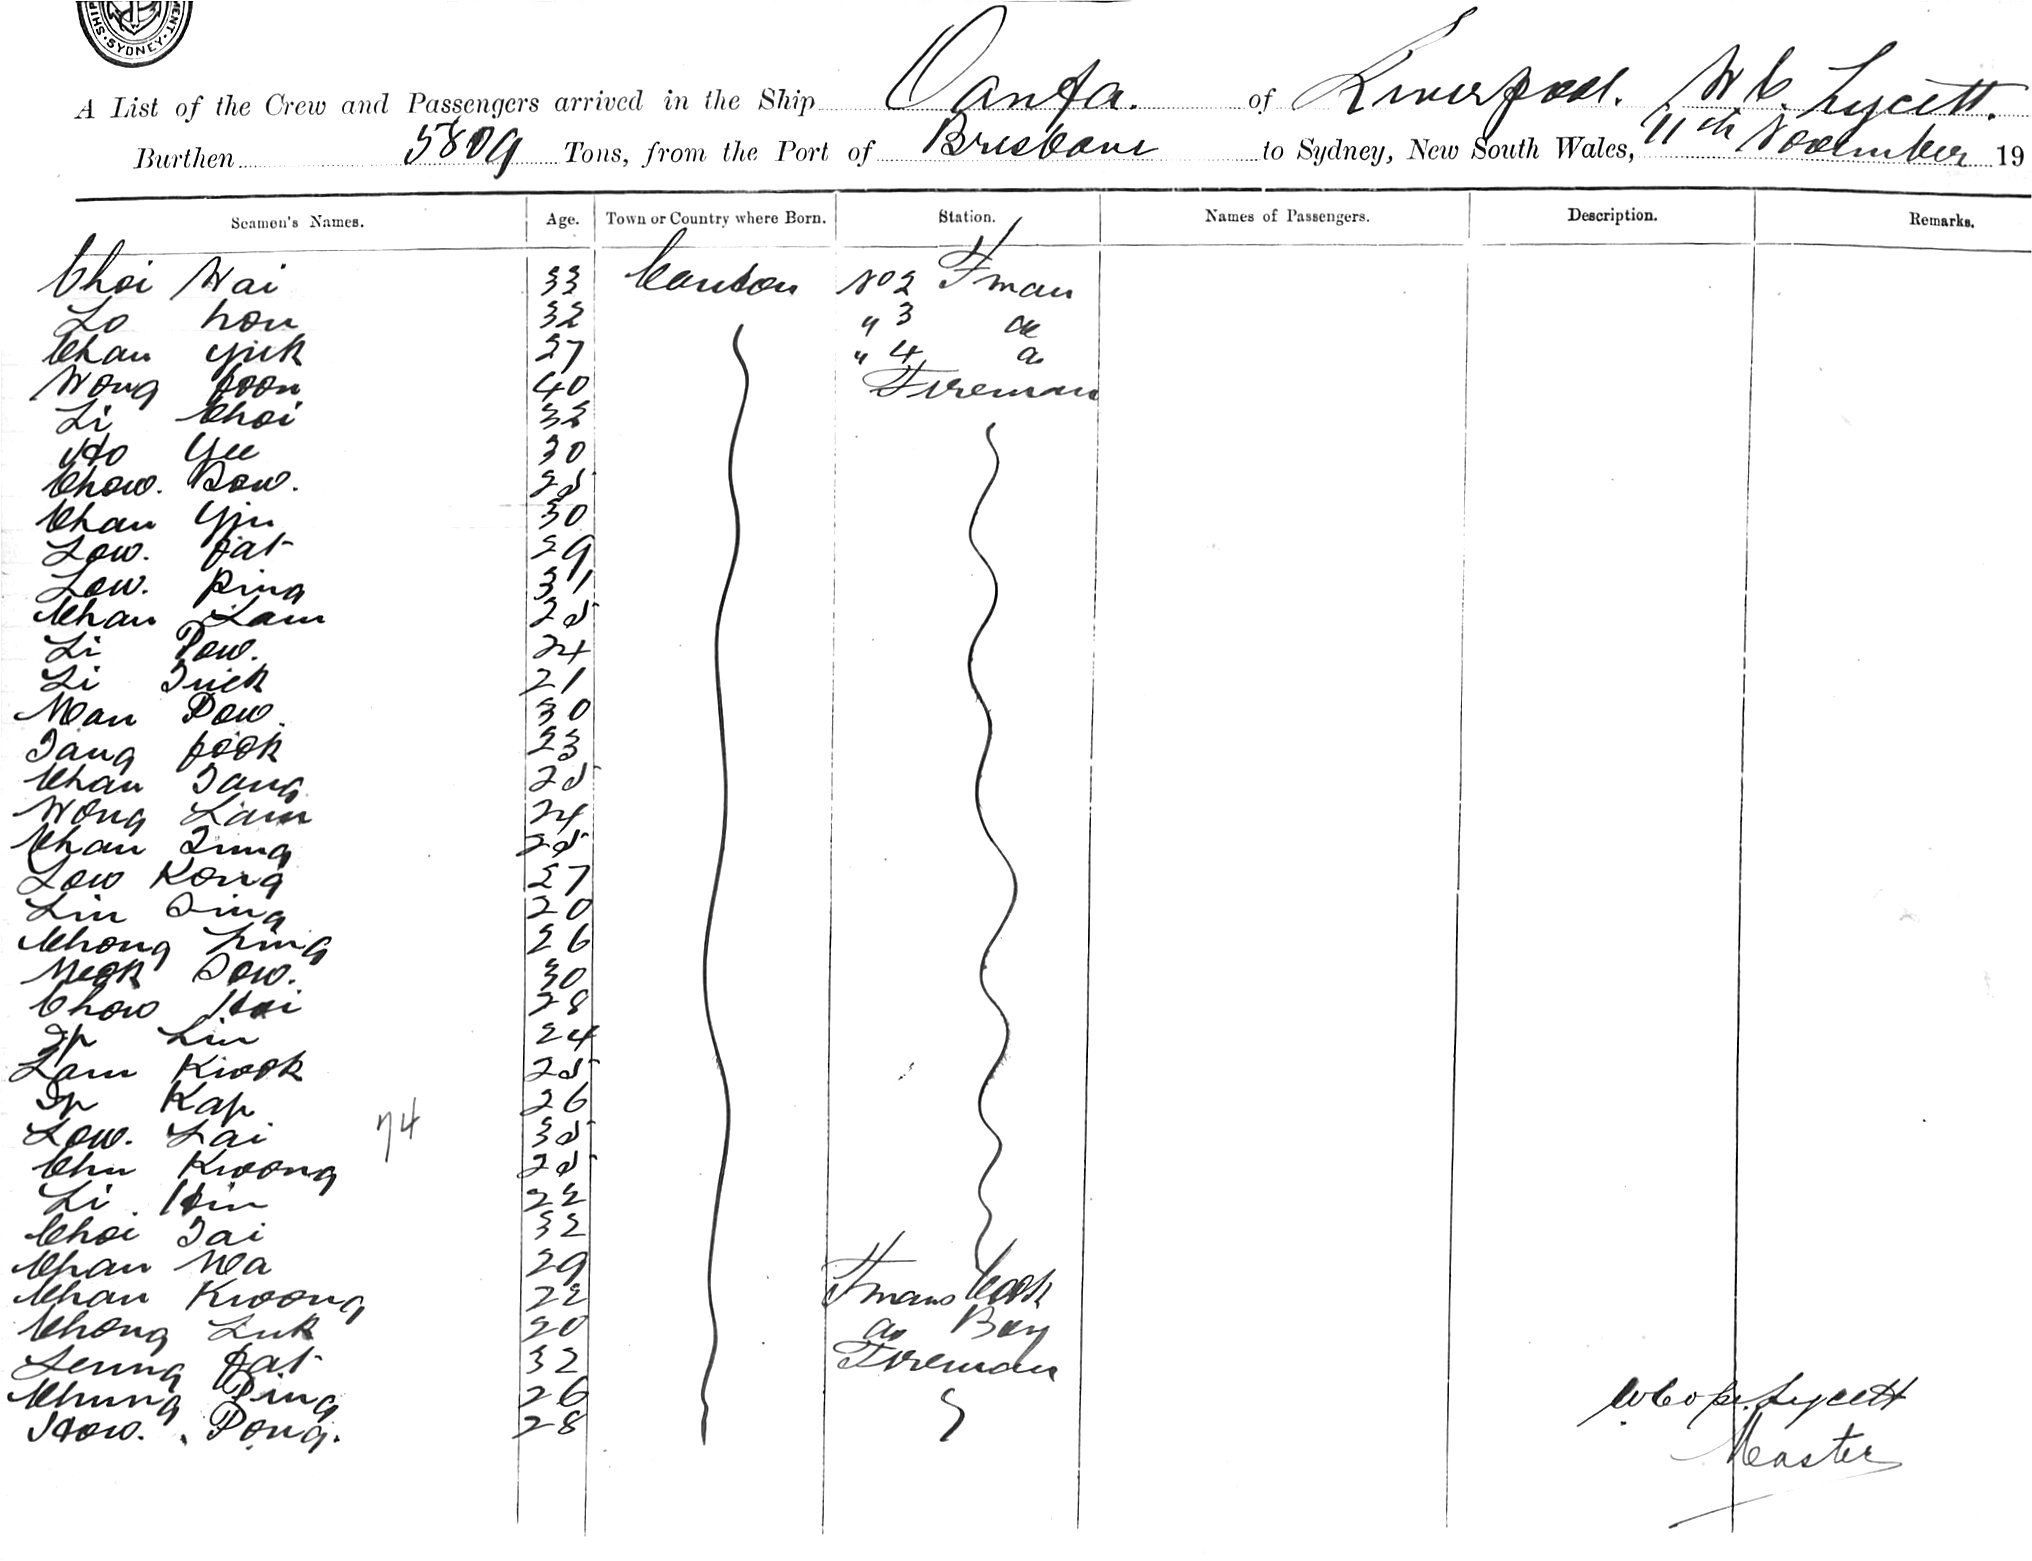 SHIP MENT · SYDNEY ·
A List of the Crew and Passengers arrived in the Ship Oanfa. of Liverpool. W.C. Lycett.
Burthen 5809 Tons, from the Port of Brisbane to Sydney, New South Wales, 11th November 19
Seamen's Names. Age. Town or Country where Born. Station. Names of Passengers. Description. Remarks.
Choi Wai 33 Canton No 2 Fman
Lo hon 32 " 3 do
Chan Yuk 27 " 4 do
Wong foon 40 Fireman
Li Choi 32
Ho Yee 30
Chow. Sow. 25
Chan Yiu 30
Low. fat 29
Low. Ping 31
Chan Lam 25
Li Pow. 24
Li Tuck 21
Man Pow. 30
Tang fook 23
Chan Tang 25
Wong Lam 24
Chan Tung 25
Low Kong 27
Lin Sing 20
Chong hing 26
Mook Sow. 30
Chow Hoi 28
Ip Lin 24
Lam Kwok 25
Ip Kap 26
Low. Lai 35
74
Chu Kwong 25
Li. Hin 22
Choi Tai 32
Chan Wa 29
Chan Kwong 22 Fmans Cook
Chong Luk 20 do Boy
Leung fat 32 Fireman
Chung Ping 26
How. Pong. 28
Lycett
Master